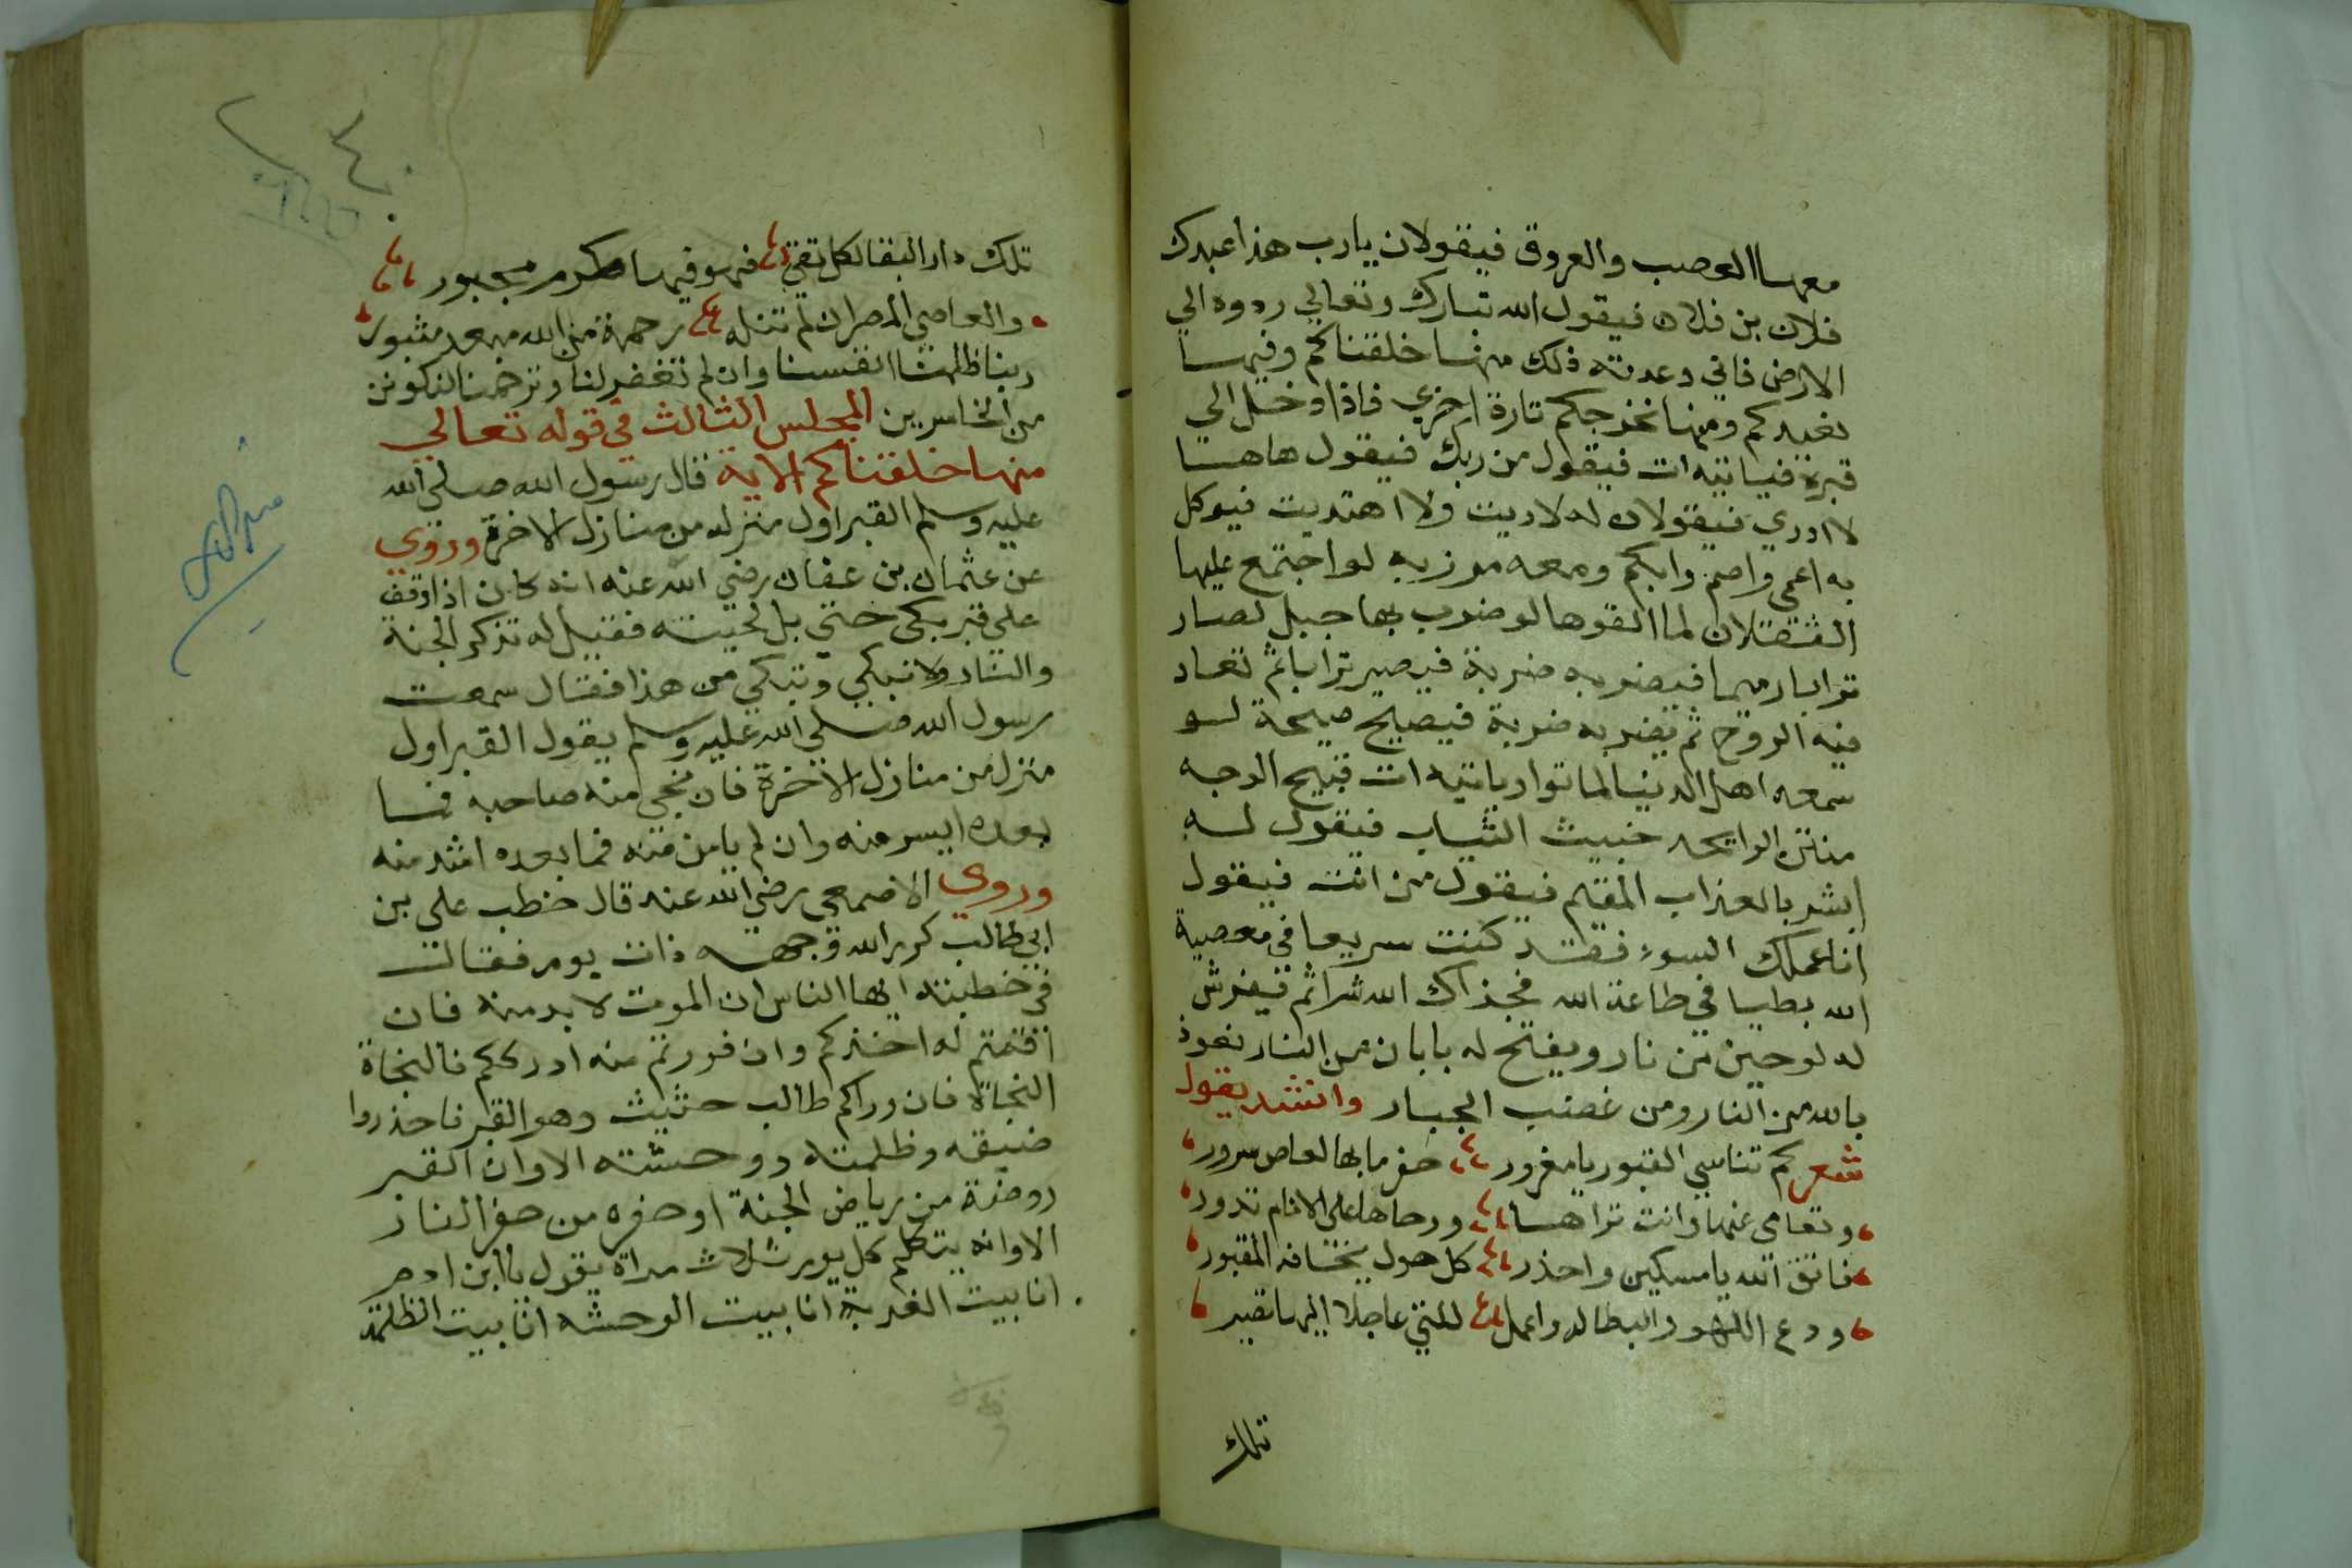 معها العصب والعروق فيقولان يارب هذا عبدك
فلان بن فلان فيقول الله تبارك وتعالي ردوه الي
الارض فاني وعدته ذلك منها خلقناكم وفيها
نعيدكم ومنها نخرجكم تارة اخري فاذا دخل الي
قبره فياتيه ات فيقول من ربك فيقول هاها
لا ادري فيقولان له لا دريت ولا اهتديت فيوكل
به اعمي واصم وابكم ومعه مرزبه لو اجتمع عليها
الثقلان لما القوها لو ضرب بها جبل لصار
ترابا رميما فيضربه ضربة فيصير ترابا ثم تعاد
فيه الروح ثم يضربه ضربة فيصيح صيحة لو
سمعه اهل الدنيا لماتوا وياتيه ات قبيح الوجه
منتن الرايحه خبيث الثياب فيقول له
ابشر بالعذاب المقيم فيقول من انت فيقول
انا عملك السوء فقد كنت سريعا في معصية
الله بطيا في طاعة الله فجزاك الله شرا ثم فيفرش
له لوحين من نار ويفتح له بابان من النار نعوذ
بالله من النار ومن غضب الجبار وانشد يقول
شعر كم تناسي القبور يا مغرور حفر ما بها لعاص سرور
وتعامي عنها وانت تراها ورحاها علي الانام تدور
فاتق الله يا مسكين واحذر كل هول يخافه المقبور
ودع اللهو والبطاله واعمل للتي عاجلا اليها تصير
تلك
تلك دار البقا لكل تقي فهو فيها مكرم مجبور
والعاصي المصر ان لم تنله رحمة من الله مبعد مثبور
ربنا ظلمنا انفسنا وان لم تغفر لنا وترحمنا لنكونن
من الخاسرين المجلس الثالث في قوله تعالي
منها خلقناكم الاية قال رسول الله صلي الله
عليه وسلم القبر اول منزله من منازل الاخرة وروي
عن عثمان بن عفان رضي الله عنه انه كان اذا وقف
علي قبر بكي حتي بل لحيته فقيل له تذكر الجنة
والنار ولا تبكي وتبكي من هذا فقال سمعت
رسول الله صلي الله عليه وسلم يقول القبر اول
منزل من منازل الاخرة فان نجي منه صاحبه فما
بعده ايسر منه وان لم يامن منه فما بعده اشد منه
وروي الاصمعي رضي الله عنه قال خطب علي بن
ابي طالب كرم الله وجهه ذات يوم فقالت
في خطبته ايها الناس ان الموت لا بد منه فان
اقمتم له اخذكم وان فررتم منه ادرككم فالنجاة
النجاة فان وراكم طالب حثيث وهو القبر فاحذروا
ضيقه وظلمته ووحشته الا وان القبر
روضة من رياض الجنة او حفره من حفر النار
الا وانه يتكلم كل يوم ثلاث مراة يقول يا ابن ادم
انا بيت الغربة انا بيت الوحشه انا بيت الظلمة